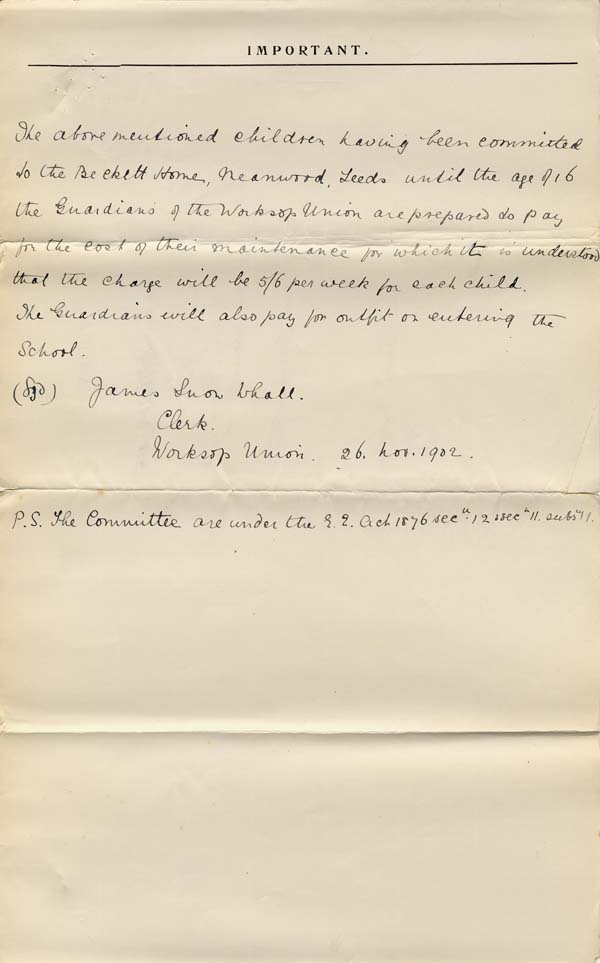 IMPORTANT.
The above mentioned children having been committed
to the Beckett Home, Meanwood, Leeds until the age of 16
the Guardians of the Worksop Union are prepared to pay
for the cost of their maintenance for which it is understood
that the charge will be 5/6 per week for each child.
The Guardians will also pay for outfit on entering the
School.
(Sgd) James Snow Whall.
Clerk.
Worksop Union. 26. Nov. 1902.
P.S. The Committee are under the E. E. Act 1876 secn. 12 & secn 11. subsn 1.